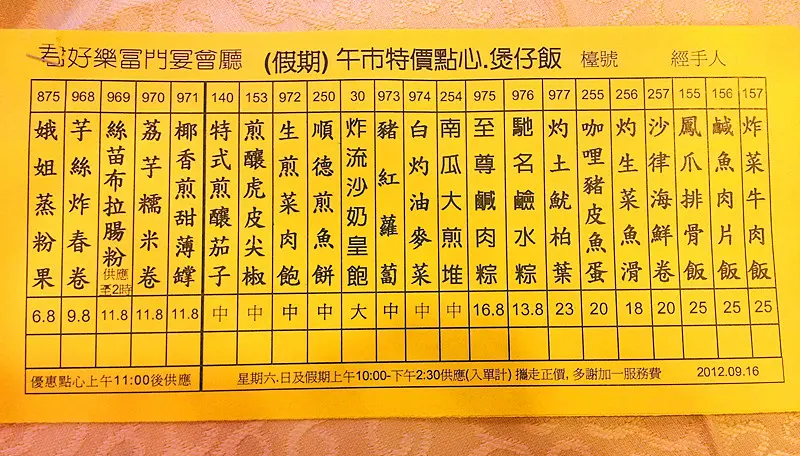 君好樂富門宴會廳 (假期) 午市特價點心.煲仔飯 檯號 經手人
875 968 969 970 971 140 153 972 250 30 973 974 254 975 976 977 255 256 257 155 156 157
娥姐蒸粉果
芋絲炸春卷
絲苗布拉腸粉
供應
至2時
荔芋糯米卷
椰香煎甜薄罉
特式煎釀茄子
煎釀虎皮尖椒
生煎菜肉飽
順德煎魚餅
炸流沙奶皇飽
豬紅蘿蔔
白灼油麥菜
南瓜大煎堆
至尊鹹肉粽
馳名鹼水粽
灼土魷柏葉
咖哩豬皮魚蛋
灼生菜魚滑
沙律海鮮卷
鳳爪排骨飯
鹹魚肉片飯
炸菜牛肉飯
6.8 9.8 11.8 11.8 11.8 中 中 中 中 大 中 中 中 16.8 13.8 23 20 18 20 25 25 25
優惠點心上午11:00後供應 星期六.日及假期上午10:00-下午2:30供應(入單計) 攜走正價, 多謝加一服務費 2012.09.16